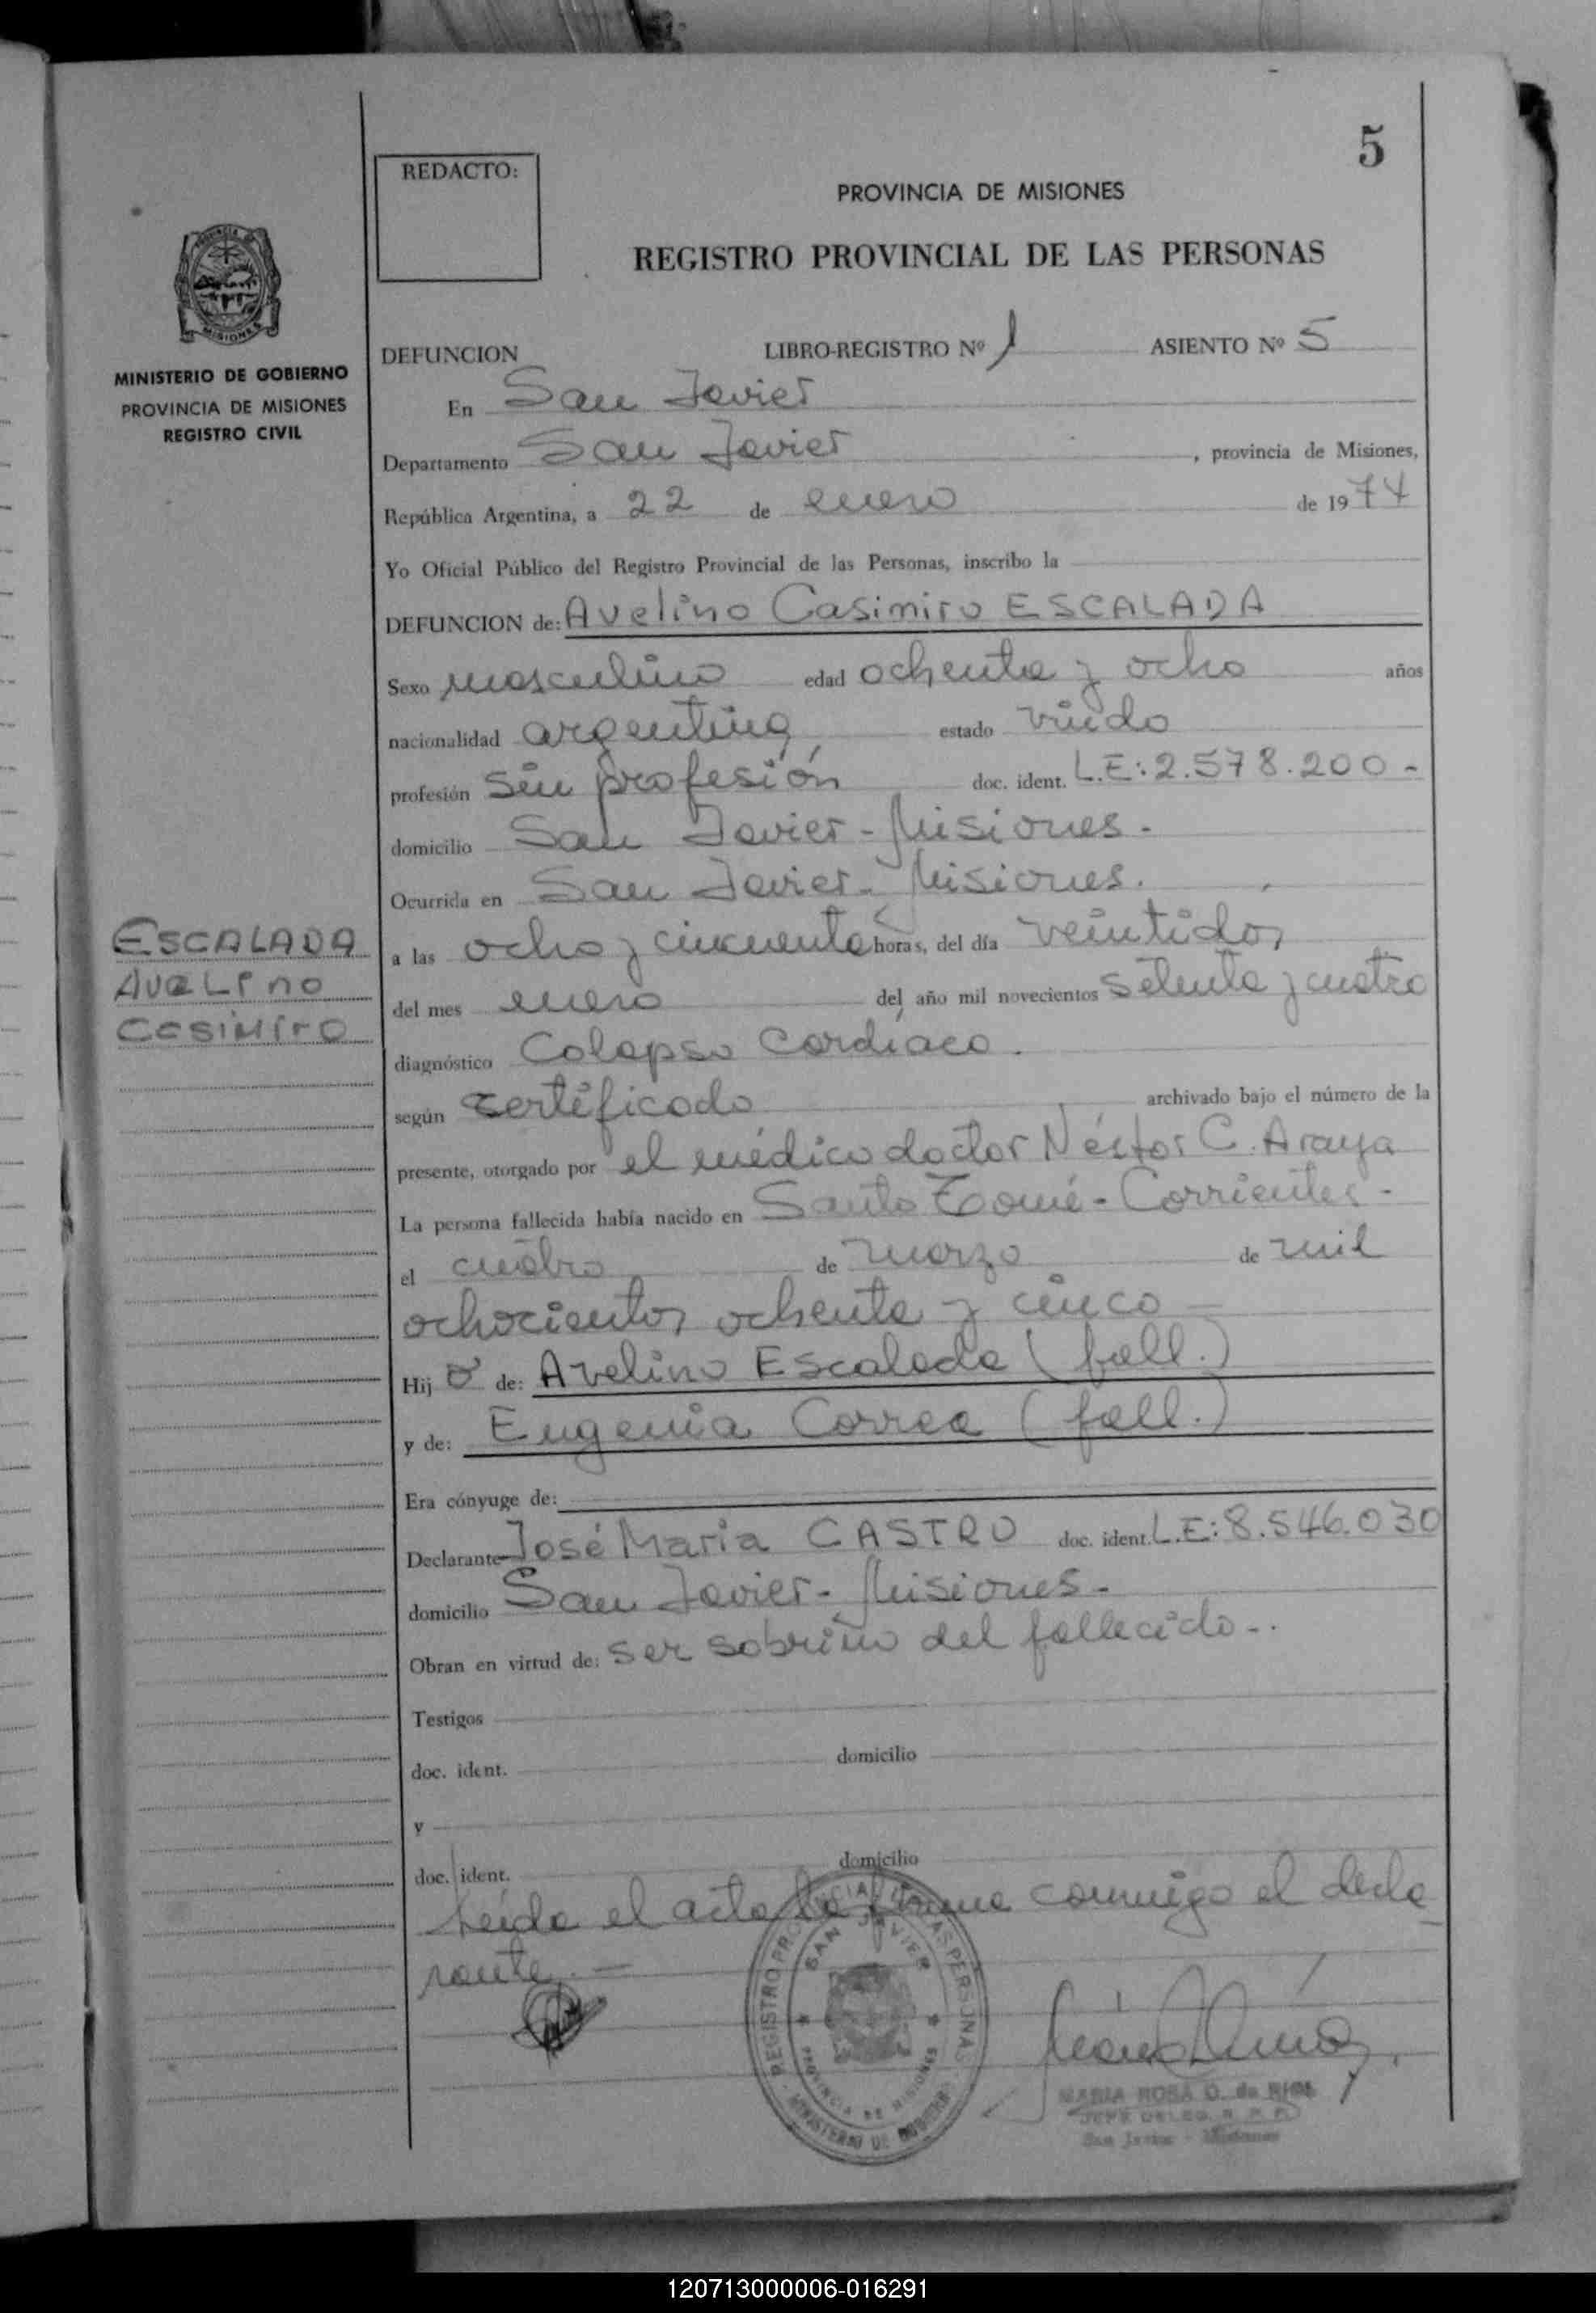 5
REDACTO:
PROVINCIA DE MISIONES
REGISTRO PROVINCIAL DE LAS PERSONAS
MISIONES
MINISTERIO DE GOBIERNO
PROVINCIA DE MISIONES
REGISTRO CIVIL
DEFUNCION LIBRO-REGISTRO Nº 1 ASIENTO Nº 5
En San Javier
Departamento San Javier , provincia de Misiones,
República Argentina, a 22 de enero de 1974
Yo Oficial Público del Registro Provincial de las Personas, inscribo la
DEFUNCION de: Avelino Casimiro ESCALADA
Sexo masculino edad ochenta y ocho años
nacionalidad argentina estado viudo
profesión sin profesión doc. ident. L.E: 2.578.200-
domicilio San Javier - Misiones-
Ocurrida en San Javier - Misiones.
a las ocho y cincuenta horas, del día veintidos
del mes enero del año mil novecientos setenta y cuatro
diagnóstico Colapso Cardíaco.
según certificado archivado bajo el número de la
presente, otorgado por el médico doctor Néstor C. Araya
La persona fallecida había nacido en Santo Tomé - Corrientes -
el cuatro de marzo de mil
ochocientos ochenta y cinco
Hij o de: Avelino Escalada (fall.)
y de: Eugenia Correa (fall.)
Era cónyuge de:
Declarante José Maria CASTRO doc. ident. L.E: 8.546.030
domicilio San Javier - Misiones -
Obran en virtud de: ser sobrino del fallecido-.
Testigos
doc. ident. domicilio
y
doc. ident. domicilio
Leída el acta la firma conmigo el decla
rante.-
ESCALADA
AVELINO
CASIMIRO
REGISTRO PROVINCIAL DE LAS PERSONAS
SAN JAVIER
PROVINCIA DE MISIONES
MINISTERIO DE GOBIERNO
MARIA ROSA O. de RIOS
JEFE DELEG. R. P. P.
San Javier - Misiones
120713000006-016291